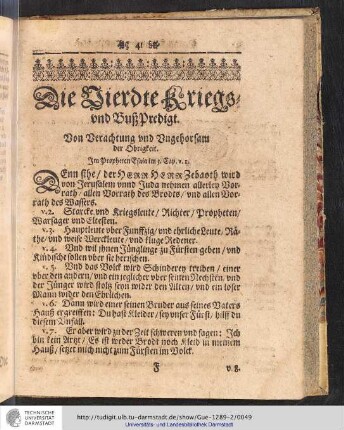 41
Die Vierdte Kriegs-
vnd BußPredigt.
Von Verachtung vnd Vngehorsam
der Obrigkeit.
Im Propheten Esaia im 3. Cap. v. 1.
DEnn sihe / der HERR HERR Zebaoth wird
von Jerusalem vnnd Juda nehmen allerley Vor-
rath / allen Vorrath des Brodts / vnd allen Vor-
rath des Wassers.
v. 2. Starcke vnd Kriegsleute / Richter / Propheten /
Warsager vnd Eltesten.
v. 3. Hauptleute vber Funfftzig / vnd ehrliche Leute / Rä-
the / vnd weise Werckleute / vnd kluge Redener.
v. 4. Vnd wil jhnen Jünglinge zu Fürsten geben / vnd
Kindische sollen vber sie herrschen.
v. 5. Vnd das Volck wird Schinderey treiben / einer
vber den andern / vnd ein jeglicher vber seinen Nechsten / vnd
der Jünger wird stoltz seyn wider den Alten / vnd ein loser
Mann wider den Ehrlichen.
v. 6. Dann wird einer seinen Bruder aus seines Vaters
Hauß ergreiffen: Du hast Kleider / sey vnser Fürst / hilff du
diesem Vnfall.
v. 7. Er aber wird zu der Zeit schweren vnd sagen: Ich
bin kein Artzt / Es ist weder Brod noch Kleid in meinem
Hauß / setzet mich nicht zum Fürsten im Volck.
F v. 8.
TECHNISCHE
UNIVERSITÄT
DARMSTADT
http://tudigit.ulb.tu-darmstadt.de/show/Gue-1289-2/0049
Universitäts- und Landesbibliothek Darmstadt